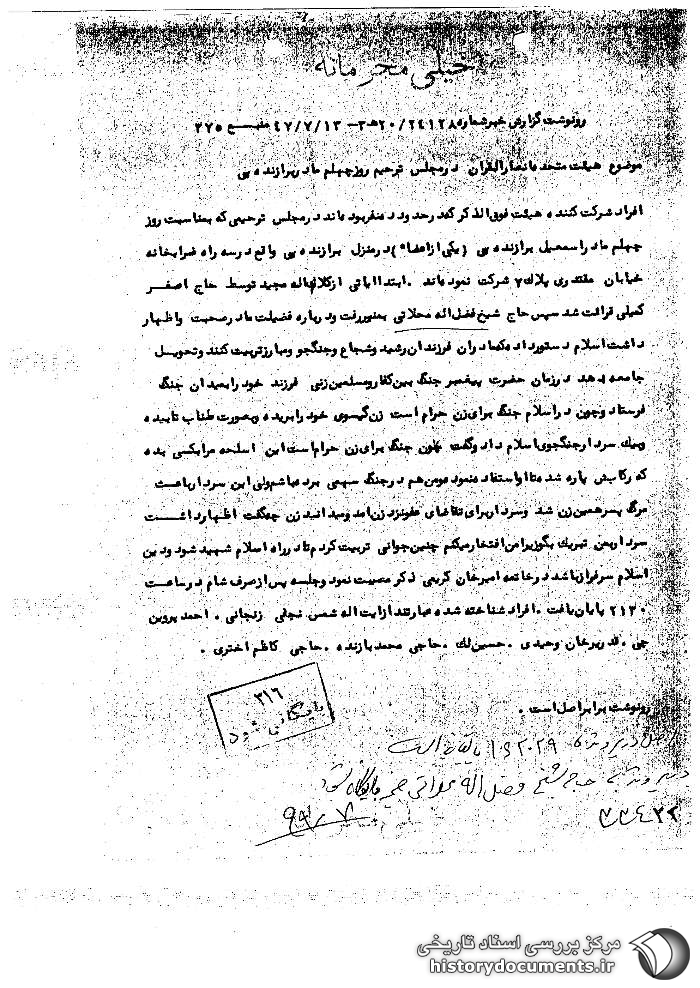 خیلی محرمانه
رونوشت گزارش خبر شماره ۲۴۱۲۸ / ۲۰ ه‍ ۳ - ۴۷/۷/۱۳ منبع ۲۷۵
موضوع هیئت متحده انصارالقران در مجلس ترحیم روز چهلم مادر برازنده پی
افراد شرکت کننده هیئت فوق الذکر که در حدود ده نفر بوده اند در مجلس ترحیمی که بمناسبت روز
چهلم مادر اسمعیل برازنده پی (یکی از اعضاء) در منزل برازنده پی واقع در سه راه ضرابخانه
خیابان مقتدری پلاک ۷ شرکت نموده اند . ابتدا ایاتی از کلام اله مجید توسط حاج اصغر
کمیلی قرائت شد سپس حاج شیخ فضل اله محلاتی بمنبر رفت و درباره فضیلت مادر صحبت و اظهار
داشت اسلام دستور داده که مادران فرزندان رشید و شجاع و جنگجو و مبارز تربیت کنند و تحویل
جامعه بدهند در زمان حضرت پیغمبر جنگ بین کفار و مسلمین زنی فرزند خود را بمیدان جنگ
فرستاد و چون در اسلام جنگ برای زن حرام است زن گیسوی خود را بریده و بصورت طناب تابیده
و بیک سردار جنگجوی اسلام داد و گفت چون جنگ برای زن حرام است این اسلحه مرا بکسی بده
که رکابش پاره شده تا او استفاده نموده و من هم در جنگ سهمی برده باشم ولی این سردار باعث
مرگ پسر همین زن شد و سردار برای تقاضای عفو نزد زن امد و میدانید زن چه گفت اظهار داشت
سردار بمن تبریک بگو زیرا من افتخار میکنم چنین جوانی تربیت کردم تا در راه اسلام شهید شود و دین
اسلام سرفراز باشد در خاتمه امیرخان کریمی ذکر مصیبت نمود و جلسه پس از صرف شام در ساعت
۲۱۳۰ پایان یافت . افراد شناخته شده عبارتند از ایت اله شمس نجفی زنجانی . احمد پروین
چی . قدیر خان وحیدی . حسین لک . حاجی محمد بازنده . حاجی کاظم اختری .
۳۱۶
بایگانی شود
رونوشت برابر اصل است .
اصل در پرونده ۱۵۲۰۲۹ بایگانی است
در پرونده حاج شیخ فضل اله محلاتی بایگانی شود
۳۳۴۲۲
مرکز بررسی اسناد تاریخی
historydocuments.ir